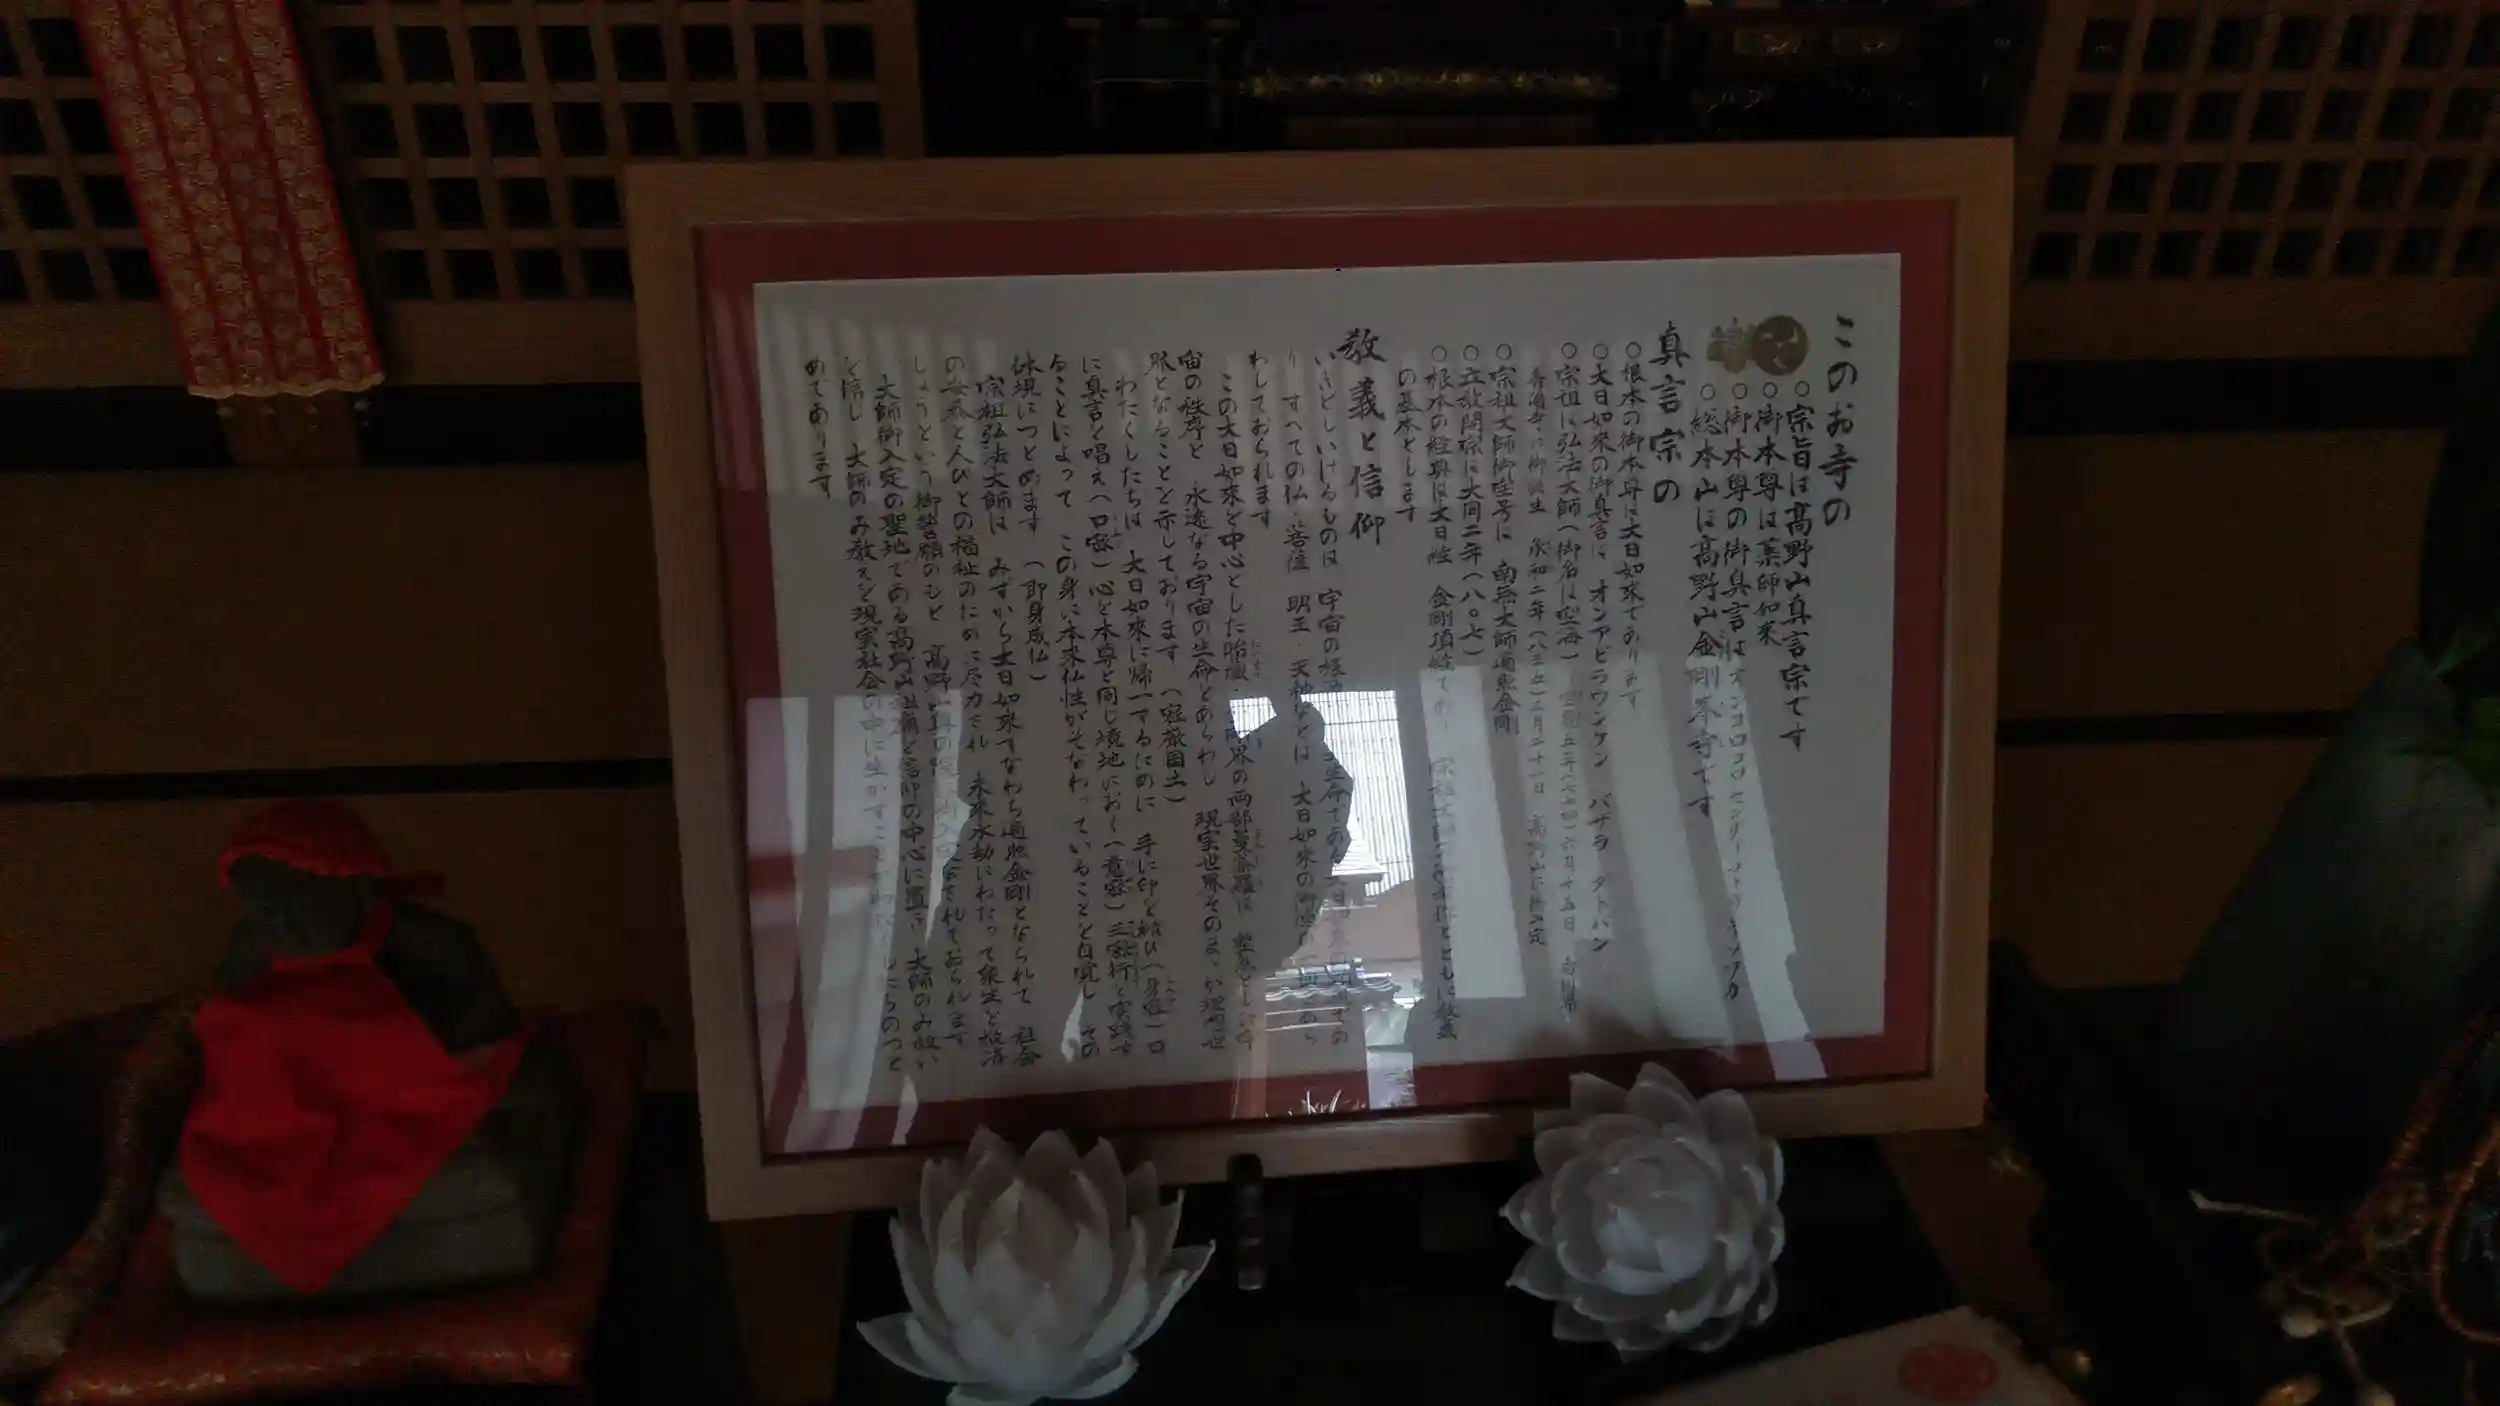 このお寺の
○宗旨は高野山真言宗です
○御本尊は薬師如来
○御本尊の御真言は オンコロコロ センダリ マトウギ ソワカ
○総本山は高野山金剛峯寺です
真言宗の
○根本の御本尊は大日如来であります
○大日如来の御真言は オンアビラウンケン バザラ ダトバン
○宗祖は弘法大師(御名は空海) 宝亀五年(七七四)六月十五日
善通寺に御誕生 承和二年(八三五)三月二十一日 高野山に御入定
○宗祖大師御宝号は 南無大師遍照金剛
○立教開宗は大同二年(八〇七)
○根本の経典は大日経 金剛頂経であり 宗祖 とともに教義
の基本とします
教義と信仰
いきとしいけるものは 宇宙の根源 生命である大日如来 の
り すべての仏・菩薩 明王・天神などは 大日如来の御徳の
わしておられます
この大日如来を中心とした胎蔵・金剛界の両部曼荼羅は 整然とした宇
宙の秩序と 永遠なる宇宙の生命とあらわし 現実世界そのまゝが理想世
界となることを示しております (密厳国土)
わたくしたちは 大日如来に帰一するために 手に印を結び(身密)口
に真言を唱え(口密)心を本尊と同じ境地におく(意密)三密行を実践す
ることによって この身に本来仏性がそなわっていることを自覚し その
体現につとめます (即身成仏)
宗祖弘法大師は みずから大日如来すなわち遍照金剛となられて 社会
の安泰と人びとの福祉のために尽力され 未来永劫にわたって衆生を救済
しようという御誓願のもと 高野山奥の院 に入定されておられます
大師御入定の聖地である高野山 を信仰の中心に置き 大師のみ救い
を信じ 大師のみ教えを現実社会の中に生かすことを わたくしたちのつと
めであります